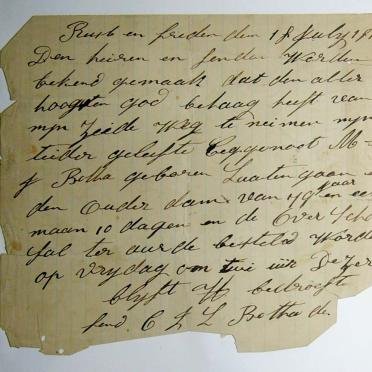 Rust en freden den 18 July 18
Den heeren en fenden Worden
bekend gemaak dat den aller
hoogsten god behaag heeft van
mijn Zeide Weg te neimen mijn
teider geleifte Eggenoot M
J Botha geboren Luaten gaan
den Ouder dam van 79 jaar en ee
maan 10 dagen en de Over Scho
fal ter aurde besteld Worde
op Vrydag om twi uir Dezer
blyft U bedroefte
fend. C L L Botha de.